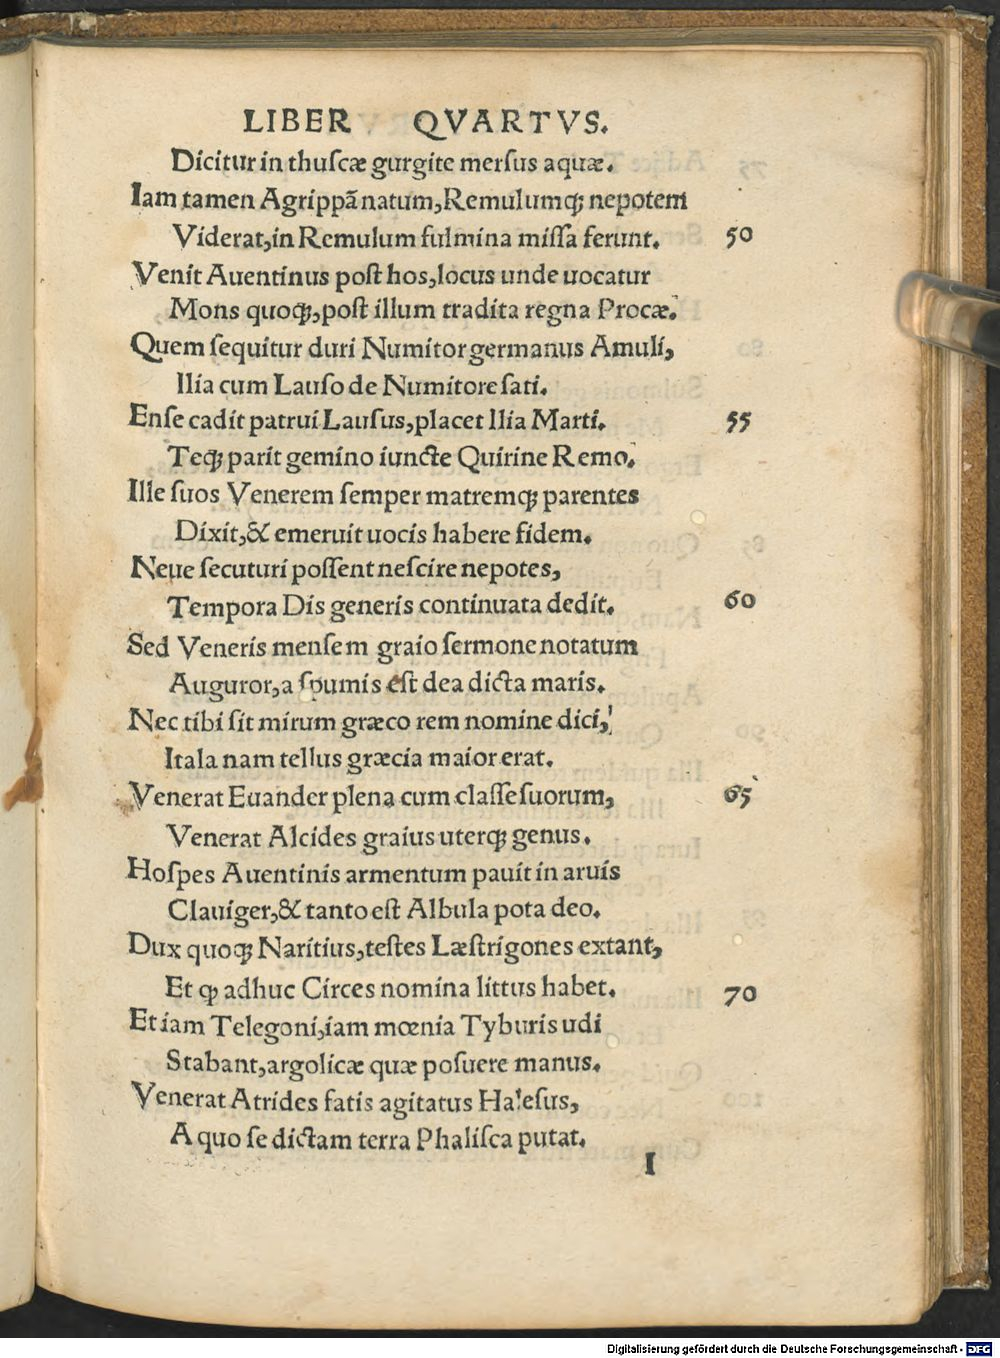 LIBER QVARTVS.
Dicitur in thuscæ gurgite mersus aquæ.
Iam tamen Agrippã natum, Remulumqꝫ nepotem
Viderat, in Remulum fulmina missa ferunt. 50
Venit Auentinus post hos, locus unde uocatur
Mons quoqꝫ, post illum tradita regna Procæ.
Quem sequitur duri Numitor germanus Amuli,
Ilia cum Lauso de Numitore sati.
Ense cadit patrui Lausus, placet Ilia Marti. 55
Teqꝫ parit gemino iuncte Quirine Remo.
Ille suos Venerem semper matremqꝫ parentes
Dixit, & emeruit uocis habere fidem.
Neue secuturi possent nescire nepotes,
Tempora Dis generis continuata dedit. 60
Sed Veneris mensem graio sermone notatum
Auguror, a spumis est dea dicta maris.
Nec tibi sit mirum græco rem nomine dici,
Itala nam tellus græcia maior erat.
Venerat Euander plena cum classe suorum, 65
Venerat Alcides graius uterqꝫ genus.
Hospes Auentinis armentum pauit in aruis
Clauiger, & tanto est Albula pota deo.
Dux quoqꝫ Naritius, testes Læstrigones extant,
Et qꝫ adhuc Circes nomina littus habet. 70
Et iam Telegoni, iam mœnia Tyburis udi
Stabant, argolicæ quæ posuere manus.
Venerat Atrides fatis agitatus Halesus,
A quo se dictam terra Phalisca putat.
I
Digitalisierung gefördert durch die Deutsche Forschungsgemeinschaft - DFG